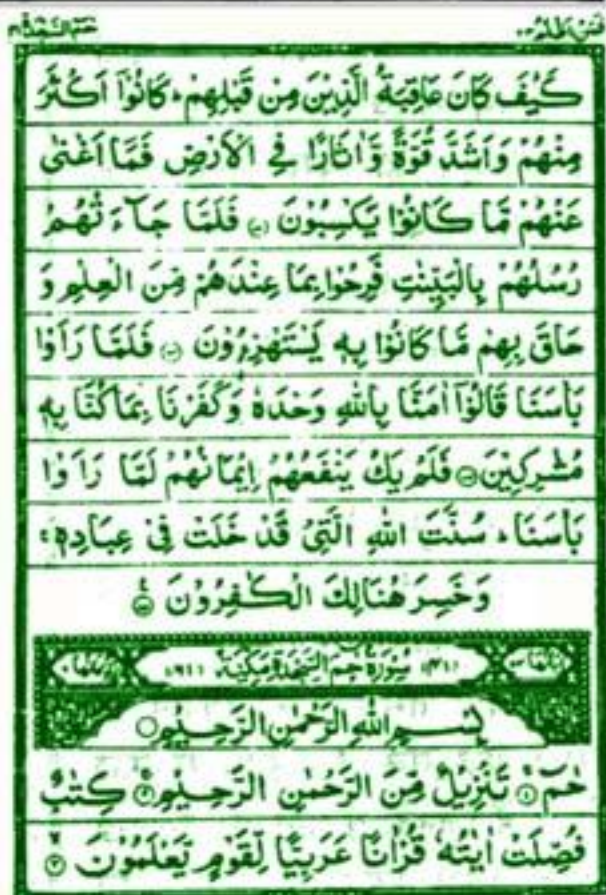 فمن اظلم ٢٤ حٰمٓ السجدة ٤١
كَيْفَ كَانَ عَاقِبَةُ الَّذِيْنَ مِنْ قَبْلِهِمْ ؕ كَانُوْۤا اَكْثَرَ
مِنْهُمْ وَاَشَدَّ قُوَّةً وَّاٰثَارًا فِي الْاَرْضِ فَمَاۤ اَغْنٰى
عَنْهُمْ مَّا كَانُوْا يَكْسِبُوْنَ ﴿٨٢﴾ فَلَمَّا جَآءَتْهُمْ
رُسُلُهُمْ بِالْبَيِّنٰتِ فَرِحُوْا بِمَا عِنْدَهُمْ مِّنَ الْعِلْمِ وَ
حَاقَ بِهِمْ مَّا كَانُوْا بِهٖ يَسْتَهْزِءُوْنَ ﴿٨٣﴾ فَلَمَّا رَاَوْا
بَاْسَنَا قَالُوْۤا اٰمَنَّا بِاللّٰهِ وَحْدَهٗ وَكَفَرْنَا بِمَا كُنَّا بِهٖ
مُشْرِكِيْنَ ﴿٨٤﴾ فَلَمْ يَكُ يَنْفَعُهُمْ اِيْمَانُهُمْ لَمَّا رَاَوْا
بَاْسَنَا ؕ سُنَّتَ اللّٰهِ الَّتِيْ قَدْ خَلَتْ فِيْ عِبَادِهٖ ۚ
وَخَسِرَ هُنَالِكَ الْكٰفِرُوْنَ ﴿٨٥﴾
(٤١) سُوْرَةُ حٰمٓ السَّجْدَةِ مَكِّيَّةٌ (٦١)
بِسْمِ اللّٰهِ الرَّحْمٰنِ الرَّحِيْمِ
حٰمٓ ﴿١﴾ تَنْزِيْلٌ مِّنَ الرَّحْمٰنِ الرَّحِيْمِ ﴿٢﴾ كِتٰبٌ
فُصِّلَتْ اٰيٰتُهٗ قُرْاٰنًا عَرَبِيًّا لِّقَوْمٍ يَّعْلَمُوْنَ ﴿٣﴾